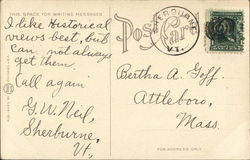 THIS SPACE FOR WRITING MESSAGES
I like Historical
views best, but
can not always
get them.
Call again
G. W. Neil,
Sherburne,
Vt.
Post Card
VT.
Bertha A. Goff.
Attleboro,
Mass.
FOR ADDRESS ONLY